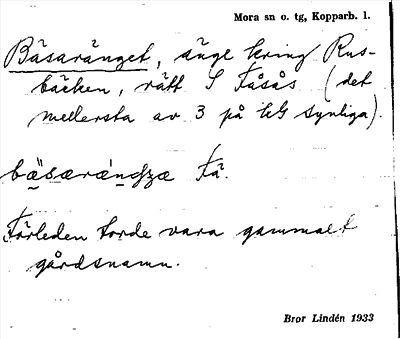 Mora sn o. tg, Kopparb. l.
Bäsaränget, änge kring Rus-
bäcken, rätt S Fåsås (det
mellersta av 3 på kG synliga).
Få.
Förleden torde vara gammalt
gårdsnamn.
Bror Lindén 1933